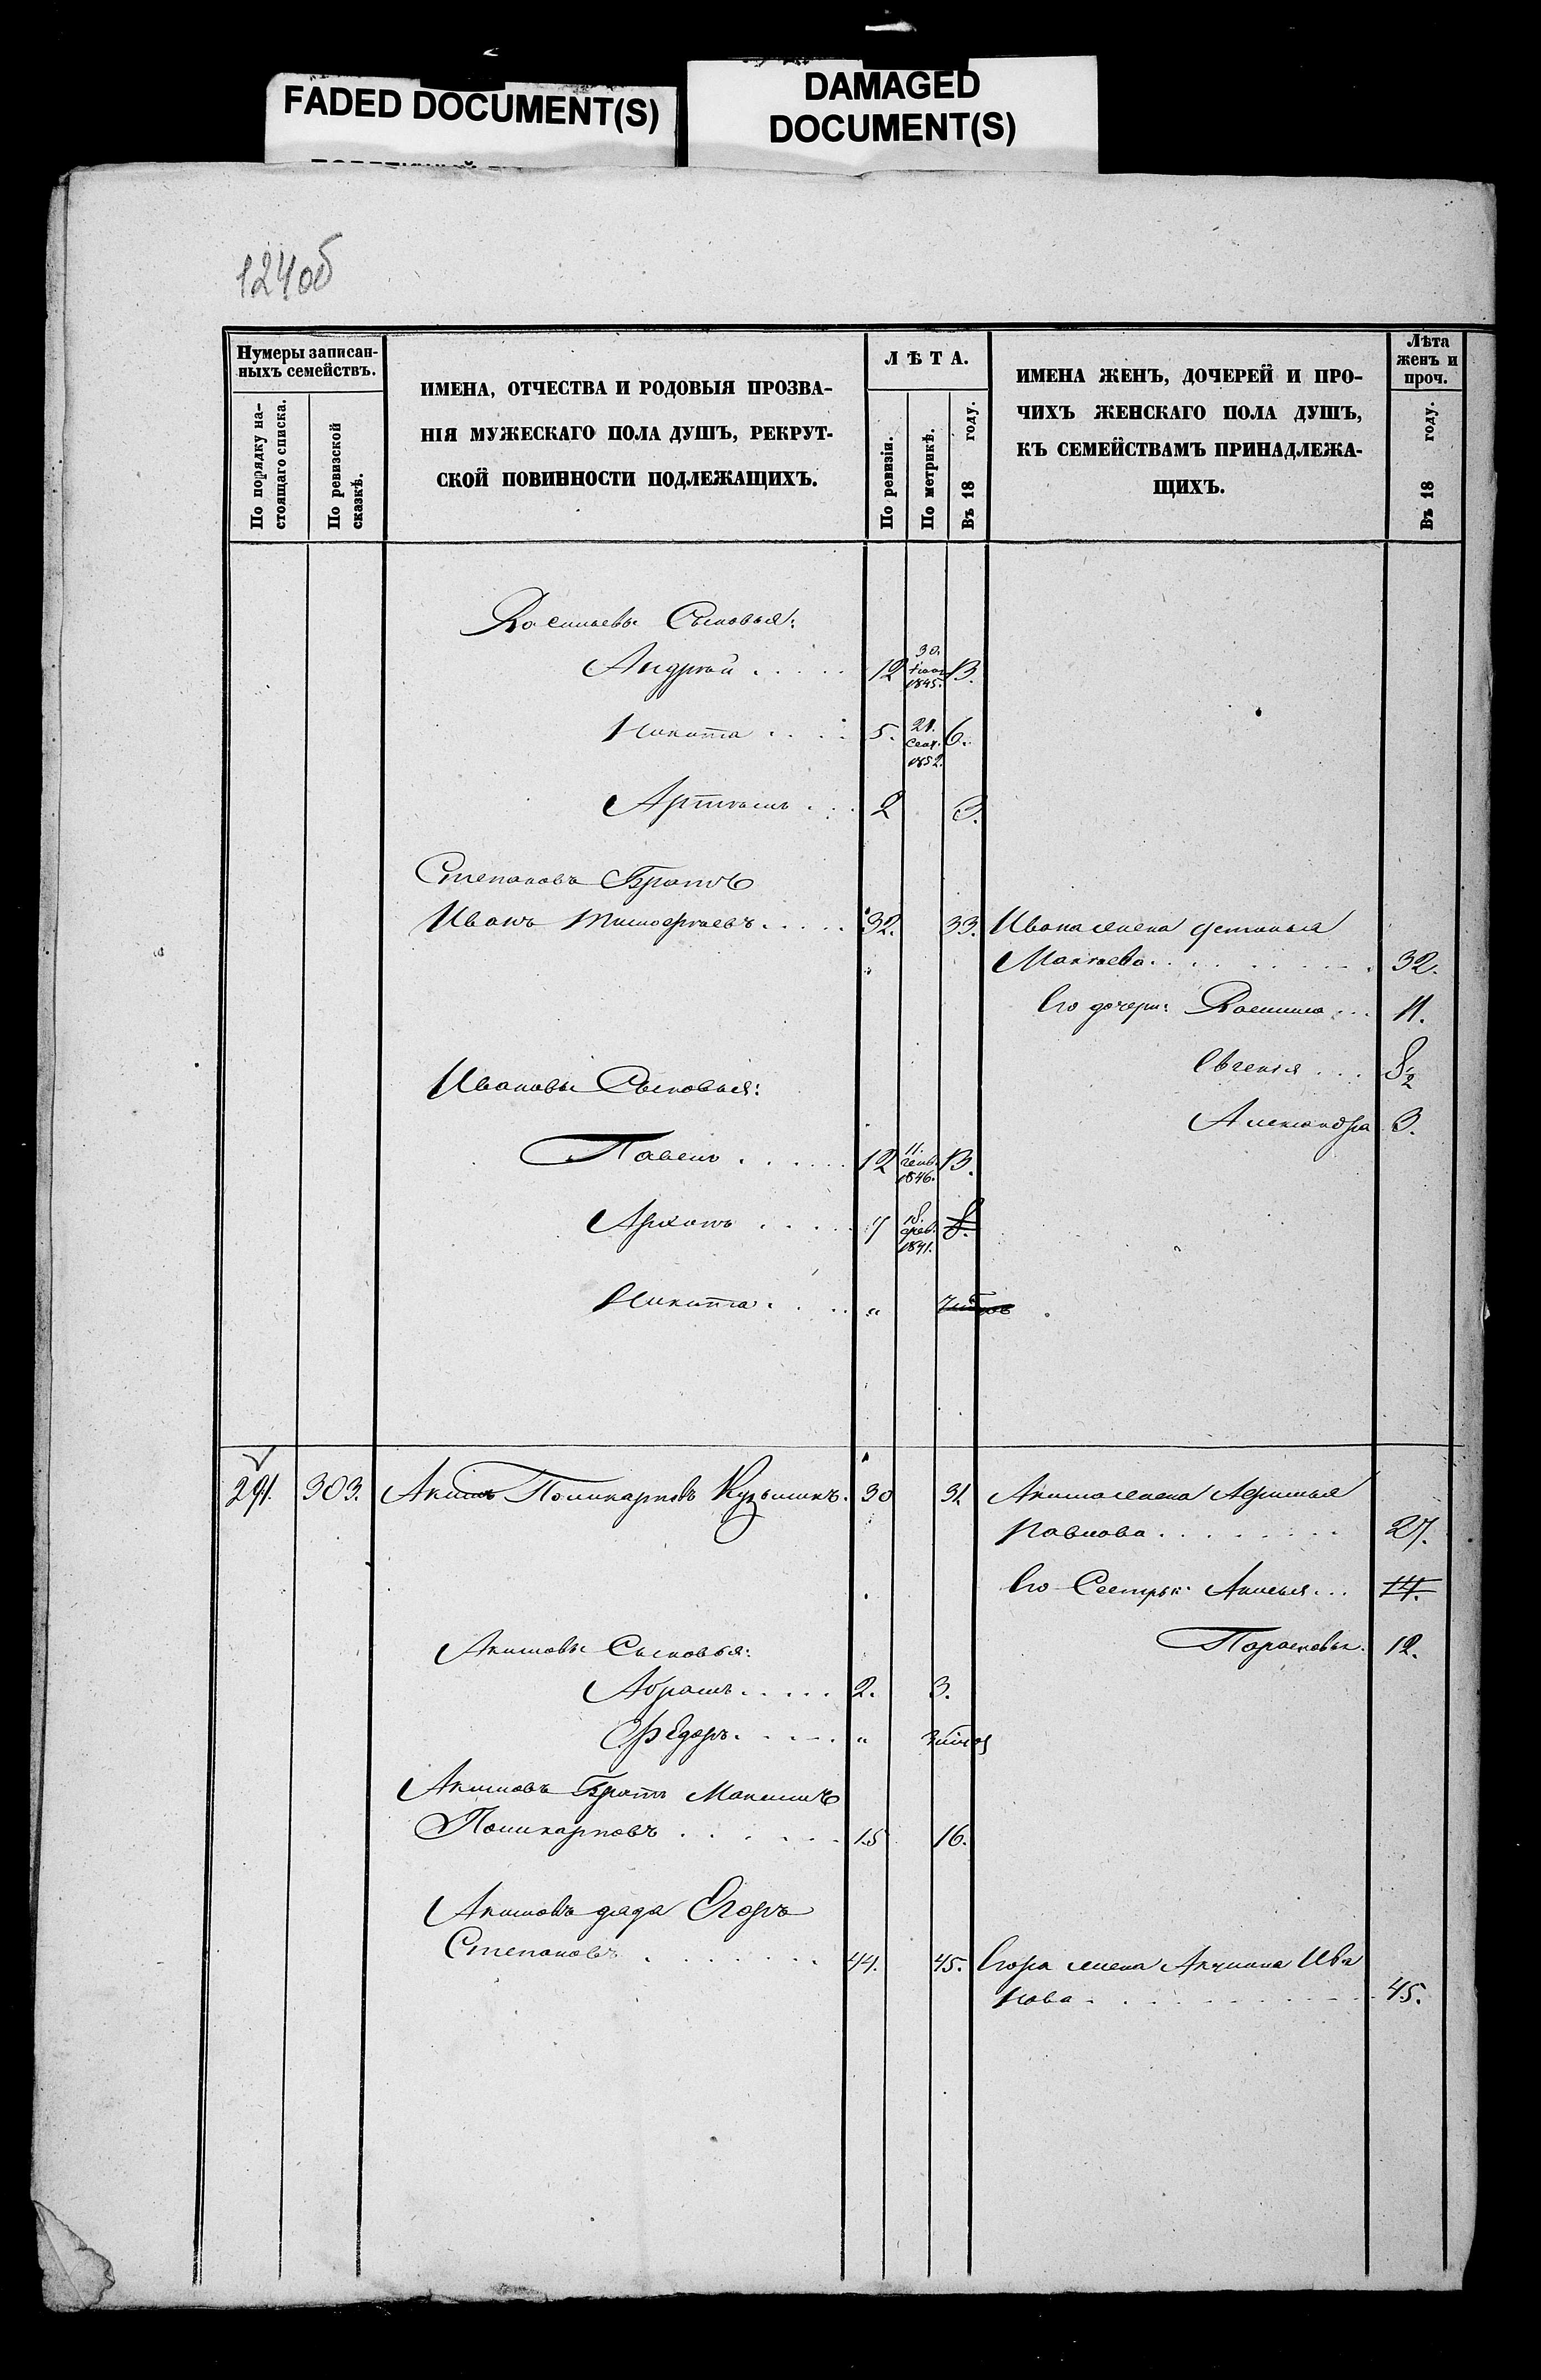 FADED DOCUMENT(S)
DAMAGED
DOCUMENT(S)
124об
Нумеры записан-
ныхъ семействъ.
По порядку на-
стоящаго списка.
По ревизской
сказкѣ.
ИМЕНА, ОТЧЕСТВА И РОДОВЫЯ ПРОЗВА-
НІЯ МУЖЕСКАГО ПОЛА ДУШЪ, РЕКРУТ-
СКОЙ ПОВИННОСТИ ПОДЛЕЖАЩИХЪ.
ЛѢТА.
По ревизіи.
По метрикѣ.
Въ 18 году.
ИМЕНА ЖЕНЪ, ДОЧЕРЕЙ И ПРО-
ЧИХЪ ЖЕНСКАГО ПОЛА ДУШЪ,
КЪ СЕМЕЙСТВАМЪ ПРИНАДЛЕЖА-
ЩИХЪ.
Лѣта
женъ и
проч.
Въ 18 году.
Васильевы Сыновья:
Андрей 12 30. 1845. 13.
Никита 5. 21. Сент. 1852. 6.
Артемъ 2 3.
Степановъ Братъ
Иванъ Тимофеевъ 32. 33. Ивана жена Устинья
Макеева 32.
Его дочери: Василиса 11.
Евгенія 8½
Ивановы Сыновья:
Александра 3.
Павелъ 12 11. генв. 1846. 13.
Архипъ 7 18. фев. 1841. 8.
Никита "
291. 303. Акимъ Поликарповъ Кузьминъ. 30 31 Акима жена Афимья
Павлова 27.
Его Сестры: Аксинья 14.
Акимовы Сыновья:
Парасковья. 12.
Абрамъ 2. 3.
Ѳедоръ "
Акимовъ Братъ Максимъ
Поликарповъ 15 16.
Акимовъ дядя Егоръ
Степановъ 44. 45. Егора жена Акулина Ива
нова 45.